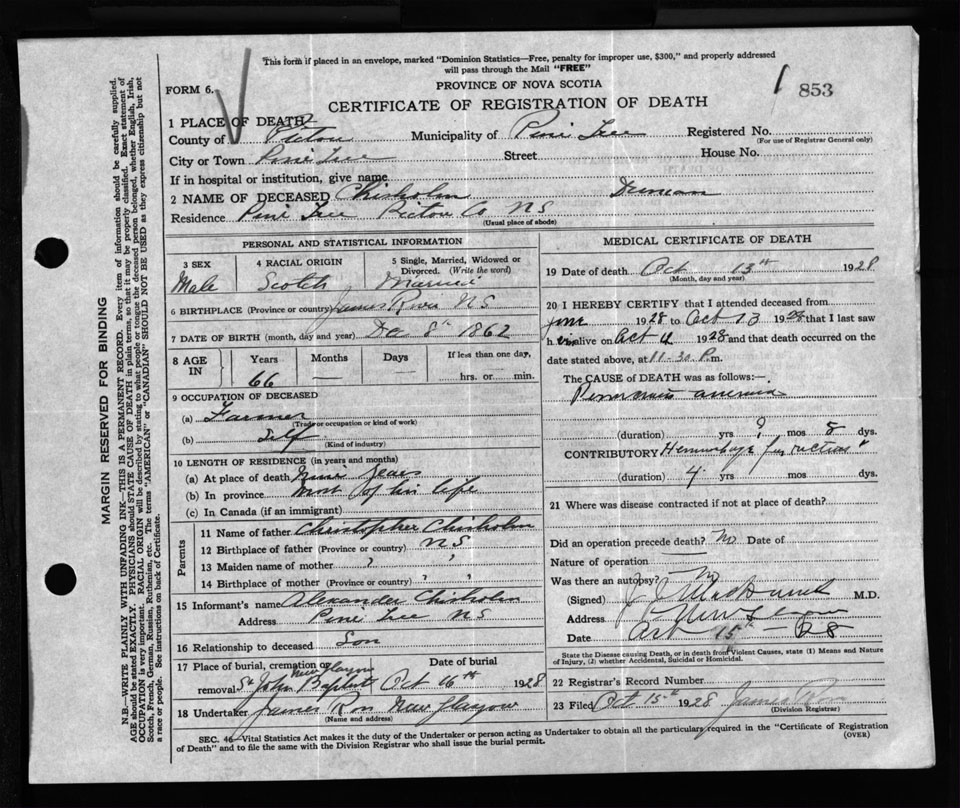 This form if placed in an envelope, marked "Dominion Statistics—Free, penalty for improper use, $300," and properly addressed
will pass through the Mail "FREE"
FORM 6.
PROVINCE OF NOVA SCOTIA
853
CERTIFICATE OF REGISTRATION OF DEATH
1 PLACE OF DEATH
County of Pictou Municipality of Pine Tree Registered No.
(For use of Registrar General only)
City or Town Pine Tree Street House No.
If in hospital or institution, give name
2 NAME OF DECEASED Chisholm Duncan
Residence Pine Tree Pictou Co NS
(Usual place of abode)
PERSONAL AND STATISTICAL INFORMATION
3 SEX 4 RACIAL ORIGIN 5 Single, Married, Widowed or
Divorced. (Write the word)
Male Scotch Married
6 BIRTHPLACE (Province or country) James River NS
7 DATE OF BIRTH (month, day and year) Dec 8th 1862
8 AGE IN Years Months Days If less than one day,
66 — — hrs. or min.
9 OCCUPATION OF DECEASED
(a) Farmer
(Trade or occupation or kind of work)
(b) Self
(Kind of industry)
10 LENGTH OF RESIDENCE (in years and months)
(a) At place of death Nine Years
(b) In province Most of his life
(c) In Canada (if an immigrant)
Parents
11 Name of father Christopher Chisholm
12 Birthplace of father (Province or country) NS
13 Maiden name of mother ? ?
14 Birthplace of mother (Province or country) ? ?
15 Informant's name Alexander Chisholm
Address Pine Tree NS
16 Relationship to deceased Son
17 Place of burial, cremation or New Glasgow Date of burial
removal St John Baptist Oct 16th 1928
18 Undertaker James Ross New Glasgow
(Name and address)
MEDICAL CERTIFICATE OF DEATH
19 Date of death Oct 13th 1928
(Month, day and year)
20 I HEREBY CERTIFY that I attended deceased from
June 1928 to Oct 13 1928 that I last saw
h im alive on Oct 11 1928 and that death occurred on the
date stated above, at 11-30 P.m.
The CAUSE OF DEATH was as follows:—
Pernicious anemia
(duration) yrs ? mos 8 dys.
CONTRIBUTORY Hemorrhage from rectum
(duration) 4 yrs mos dys.
21 Where was disease contracted if not at place of death?
Did an operation precede death? No Date of
Nature of operation
Was there an autopsy? No
(Signed) M.D.
Address
Date 15th 28
State the Disease causing Death, or in death from Violent Causes, state (1) Means and Nature
of Injury, (2) whether Accidental, Suicidal or Homicidal.
22 Registrar's Record Number
23 Filed Oct 15th 1928 James
(Division Registrar)
SEC. 46—Vital Statistics Act makes it the duty of the Undertaker or person acting as Undertaker to obtain all the particulars required in the "Certificate of Registration
of Death" and to file the same with the Division Registrar who shall issue the burial permit.
(OVER)
MARGIN RESERVED FOR BINDING
N.B.—WRITE PLAINLY WITH UNFADING INK—THIS IS A PERMANENT RECORD. Every item of information should be carefully supplied.
AGE should be stated EXACTLY. PHYSICIANS should STATE CAUSE OF DEATH in plain terms, so that it may be properly classified. Exact statement of
OCCUPATION is very important. RACIAL ORIGIN will be described by stating to what people or tongue the deceased person belonged, whether English, Irish,
Scotch, French, German, Russian, Ruthenian, etc. The terms "AMERICAN" or "CANADIAN" SHOULD NOT BE USED as they express citizenship but not
a race or people. See instructions on back of Certificate.